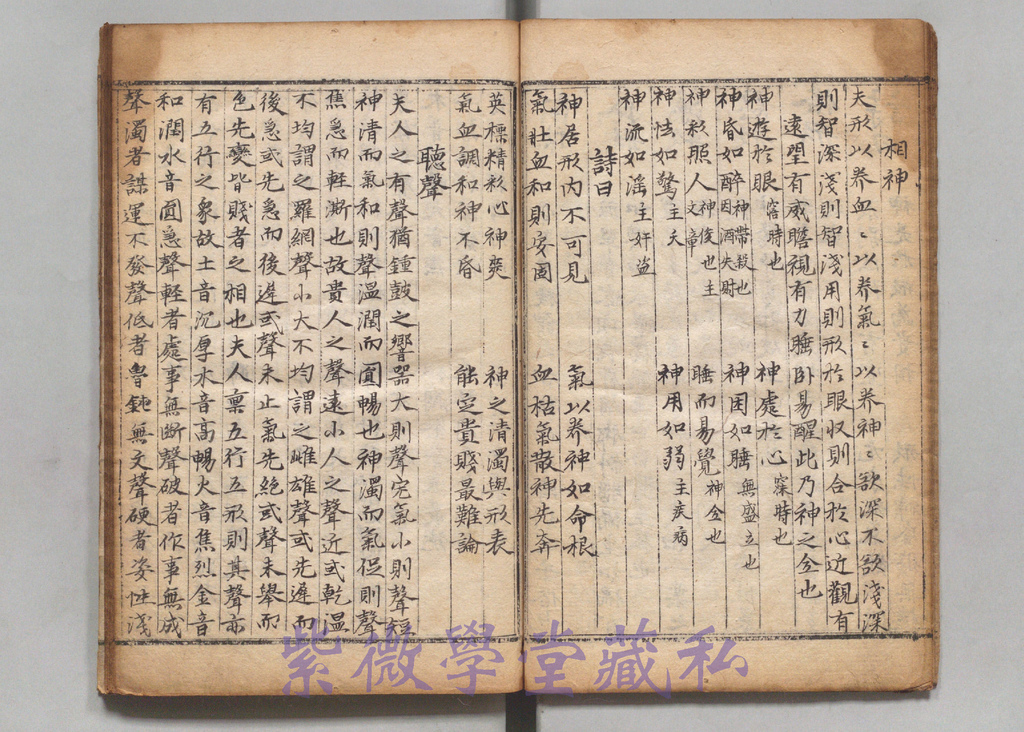 相神
夫形以养血〻以养氣〻以养神〻欲深不欲淺深
則智深淺則智淺用則形於眼収則合於心近觀有
遠望有威瞻視有力睡卧易醒此乃神之全也
神遊於眼 寤時也 神處於心 寐時也
神昏如醉 神帶殺也因酒失財 神困如睡 無盛立也
神彩照人 神俊也主文章 睡而易覺 神全也
神怯如驚 主夭 神用如弱 主疾病
神流如滛 主奸盜
詩曰
神居形内不可見 氣以养神如命根
氣壯血和則安固 血枯氣散神先奔
英標精彩心神爽 神之清濁與形表
氣血調和神不昏 能定貴賤最難論
聽聲
夫人之有聲猶鍾鼓之響器大則聲宏氣小則聲短
神清而氣和則聲溫潤而圓暢也神濁而氣促則聲
焦急而軽澌也故貴人之聲遠小人之聲近或乾温
不均謂之羅網聲小大不均謂之雌雄聲或先遲而
後急或先急而後遲或聲未止氣先絶或聲未舉而
色先變皆賤者之相也夫人禀五行五形則其聲亦
有五行之象故土音沉厚水音高暢火音焦烈金音
和潤水音圓急聲軽者處事無断聲破者作事無成
聲濁者謀運不發聲低者魯鈍無文聲硬者姿性淺
紫微學堂藏私